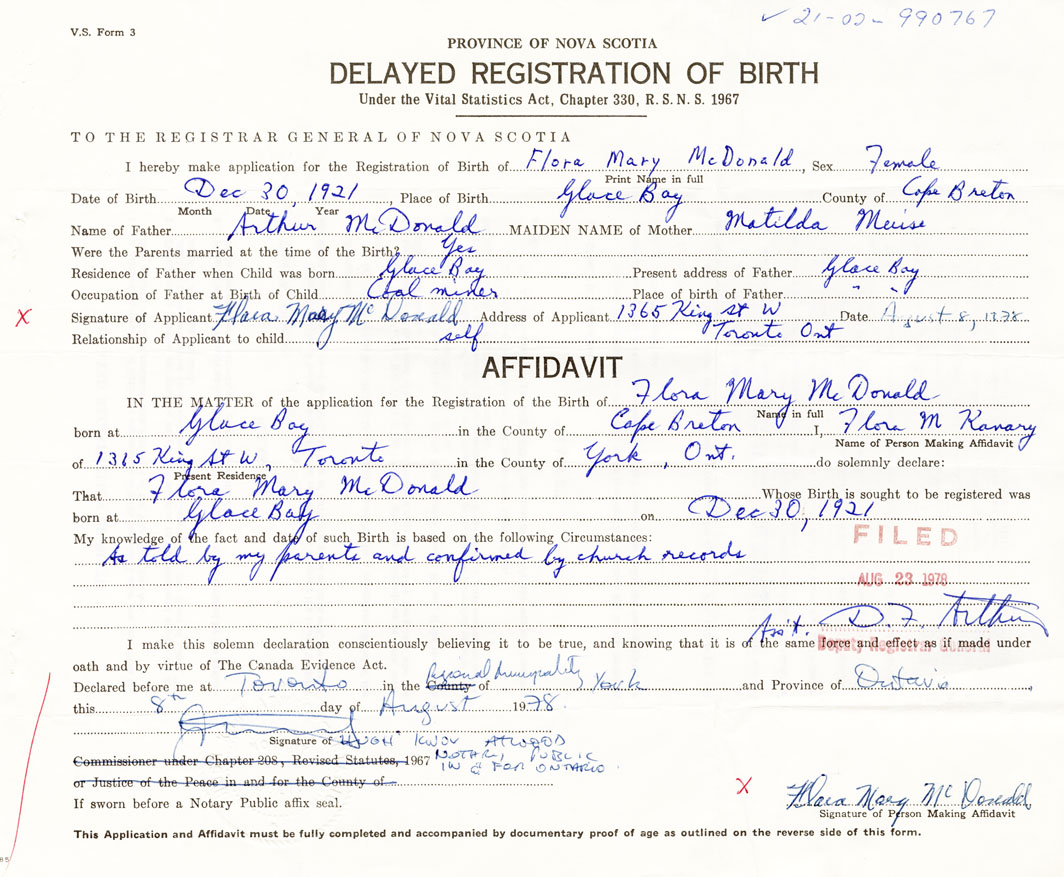 ✓ 21-02-990767
V.S. Form 3
PROVINCE OF NOVA SCOTIA
DELAYED REGISTRATION OF BIRTH
Under the Vital Statistics Act, Chapter 330, R.S.N.S. 1967
TO THE REGISTRAR GENERAL OF NOVA SCOTIA
I hereby make application for the Registration of Birth of Flora Mary McDonald, Sex Female
Print Name in full
Date of Birth Dec 30, 1921, Place of Birth Glace Bay County of Cape Breton
Month Date Year
Name of Father Arthur McDonald MAIDEN NAME of Mother Matilda Muise
Were the Parents married at the time of the Birth? Yes
Residence of Father when Child was born Glace Bay Present address of Father Glace Bay
Occupation of Father at Birth of Child Coal miner Place of birth of Father " "
X Signature of Applicant Flora Mary McDonald Address of Applicant 1365 King St W Date August 8, 1978
Relationship of Applicant to child self Toronto Ont
AFFIDAVIT
IN THE MATTER of the application for the Registration of the Birth of Flora Mary McDonald
Name in full
born at Glace Bay in the County of Cape Breton I, Flora M Kanary
Name of Person Making Affidavit
of 1365 King St W, Toronto in the County of York, Ont. do solemnly declare:
Present Residence
That Flora Mary McDonald Whose Birth is sought to be registered was
born at Glace Bay on Dec 30, 1921
My knowledge of the fact and date of such Birth is based on the following Circumstances:
As told by my parents and confirmed by church records
FILED
AUG 23 1978
Ass't. D. F. Arthur
Deputy Registrar General
I make this solemn declaration conscientiously believing it to be true, and knowing that it is of the same force and effect as if made under
oath and by virtue of The Canada Evidence Act.
Declared before me at Toronto in the County of Regional Municipality York and Province of Ontario,
this 8th day of August 1978.
Signature of HUGH KNOX ATWOOD
Commissioner under Chapter 208, Revised Statutes, 1967 NOTARY PUBLIC
or Justice of the Peace in and for the County of IN & FOR ONTARIO.
If sworn before a Notary Public affix seal.
X Flora Mary McDonald
Signature of Person Making Affidavit
This Application and Affidavit must be fully completed and accompanied by documentary proof of age as outlined on the reverse side of this form.